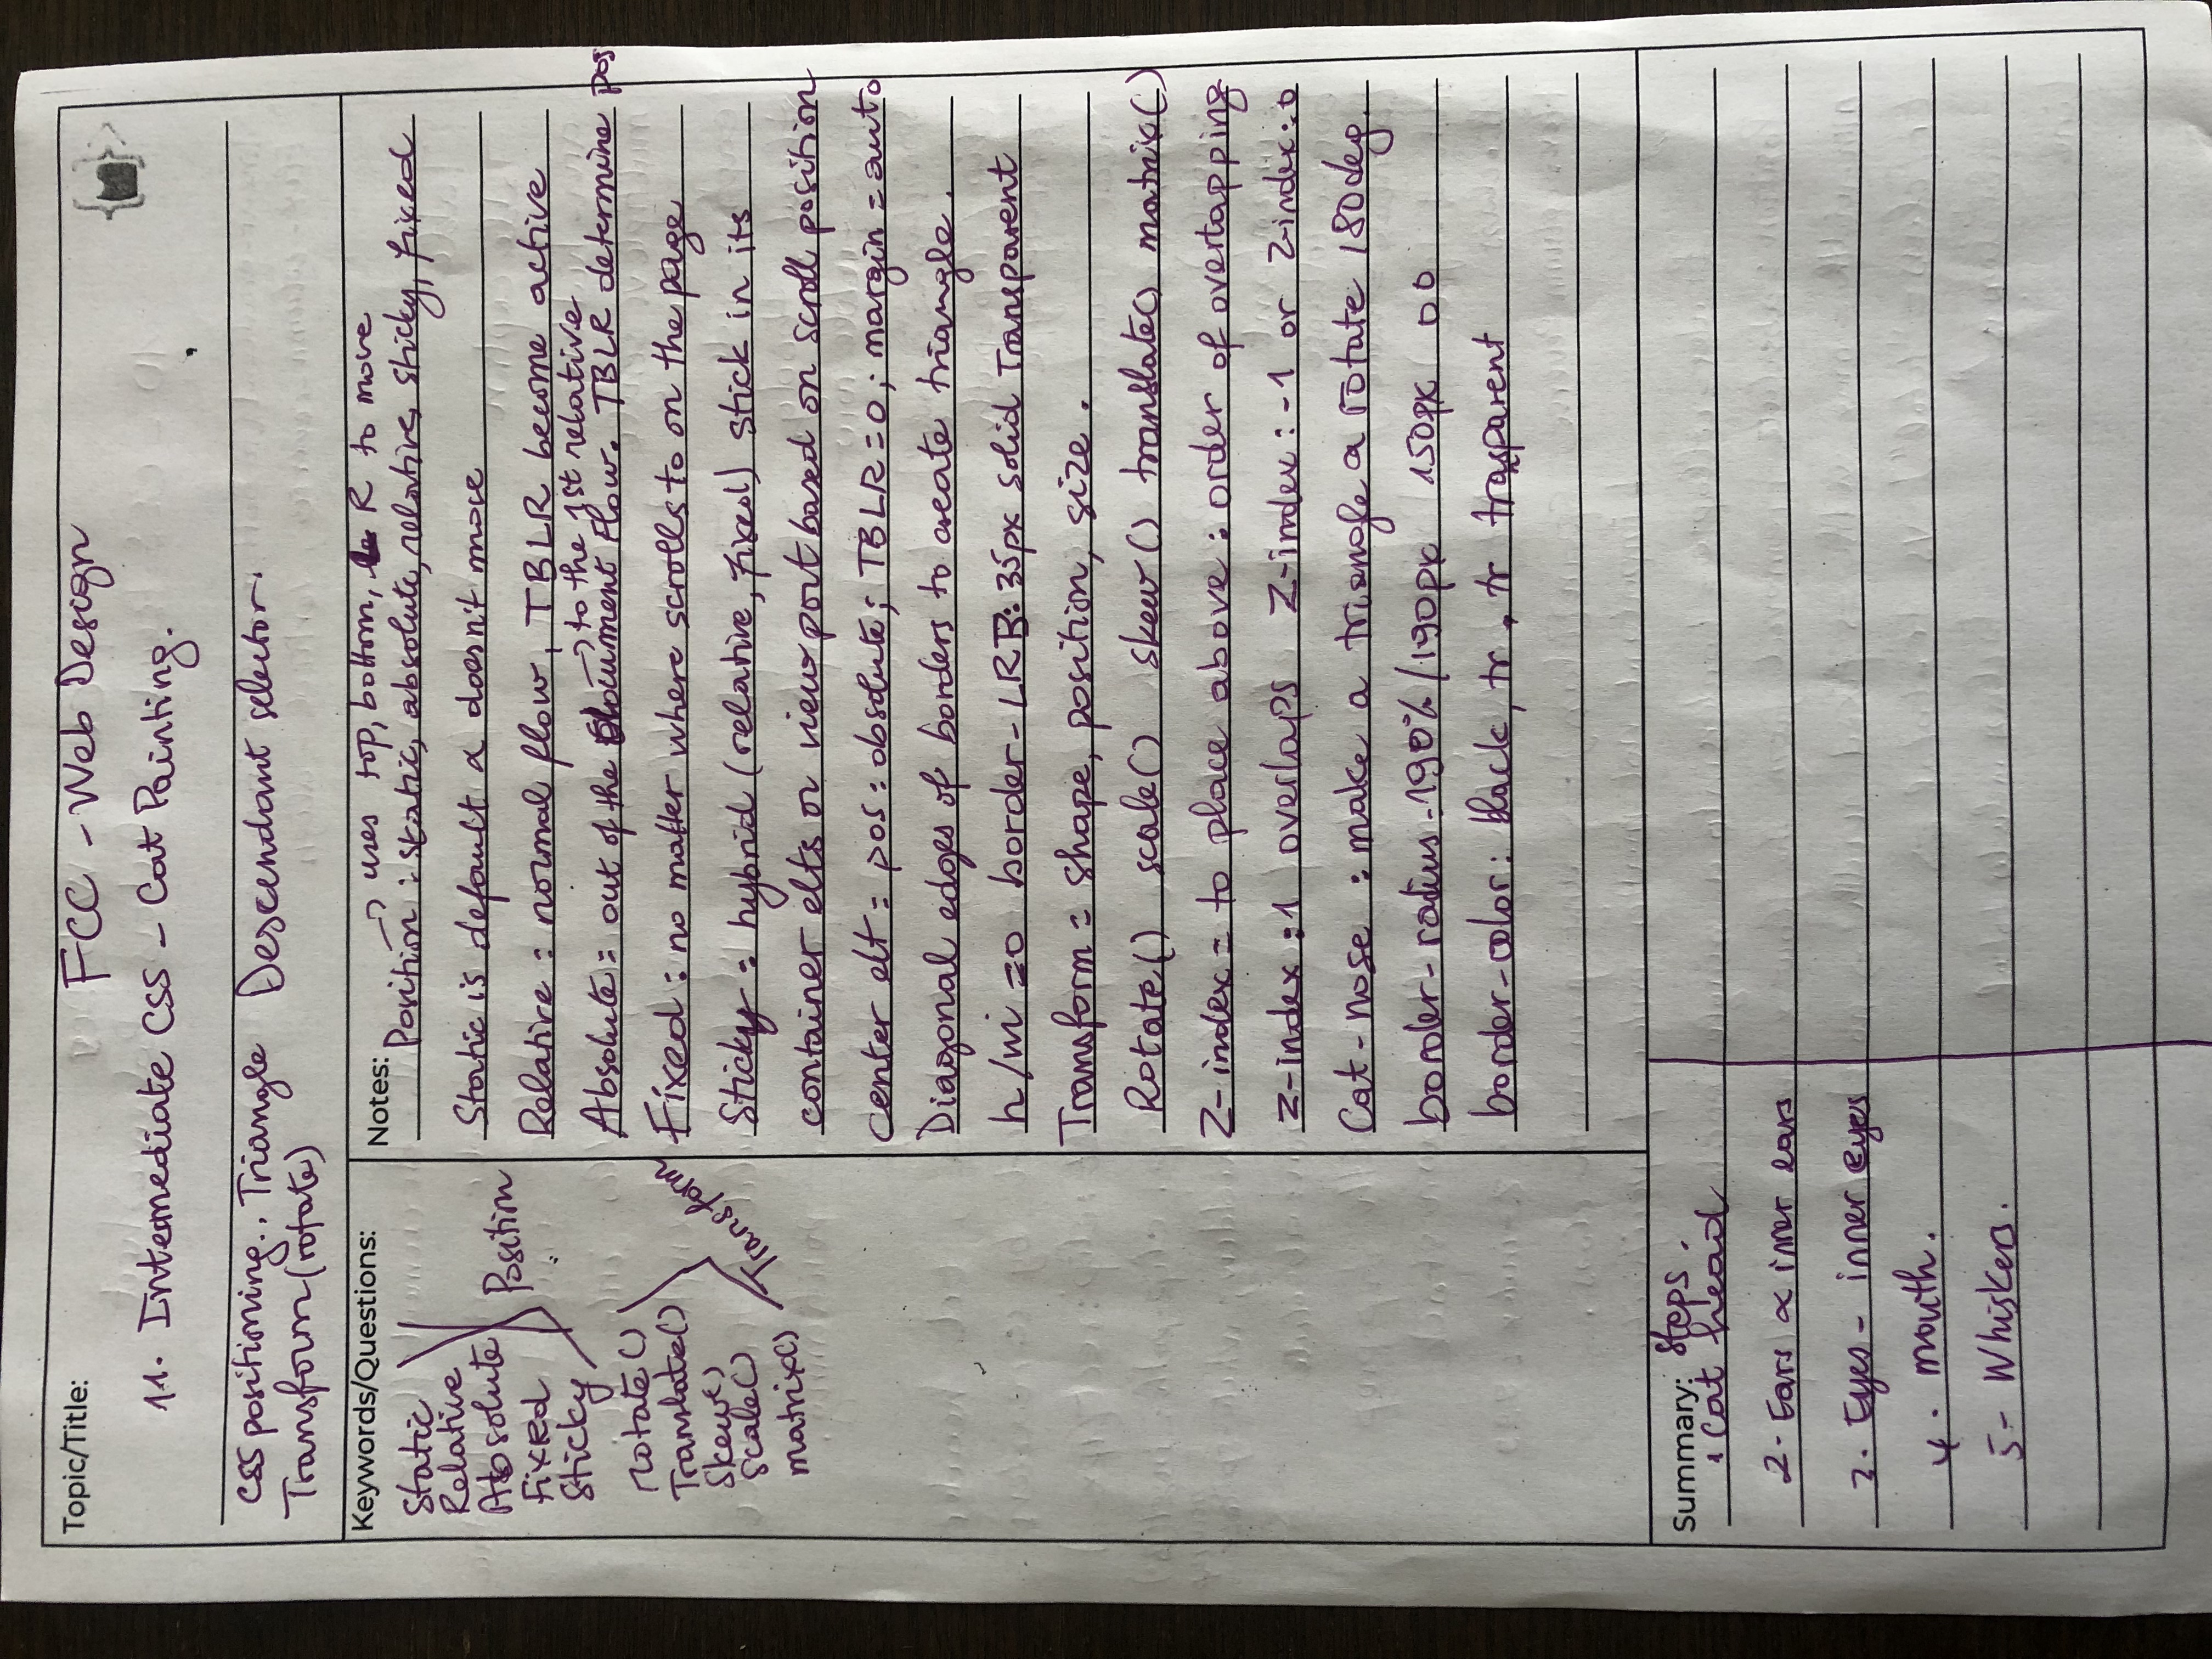 Topic/Title:
FCC - Web Design
11. Intermediate CSS - Cat Painting.
CSS positioning.. Triangle Descendant selector.
Transform (rotate)
Keywords/Questions:
Static
Relative
Absolute
Fixed
Sticky
Position
rotate()
Translate()
Skew()
Scale()
matrix()
Transform
Notes:
→ uses top, bottom, R to move
Position : static, absolute, relative, sticky, fixed
Static is default & doesn't move
Relative : normal flow, TBLR become active
→ to the 1st relative
Absolute = out of the document Flow. TBLR determine pos
Fixed : no matter where scrolls to on the page
Sticky = hybrid (relative, fixed) stick in its
container elts or view port based on scroll position
Center elt = pos : absolute; TBLR = 0; margin = auto
Diagonal edges of borders to create triangle.
h/w = 0 border-LRB: 35px solid Transparent
Transform = shape, position, size.
Rotate() scale() skew() translate() matrix()
Z-index = to place above : order of overlapping
Z-index : 1 overlaps Z-index : -1 or Z-index : 0
Cat-nose : make a triangle & rotate 180deg.
border-radius - 190%/190px 150px 0 0
border-color : black, tr, tr trasparent
n
Summary: Steps.
1 Cat head
2- Ears & inner ears
3. Eyes - inner eyes
4. mouth.
5- Whiskers.